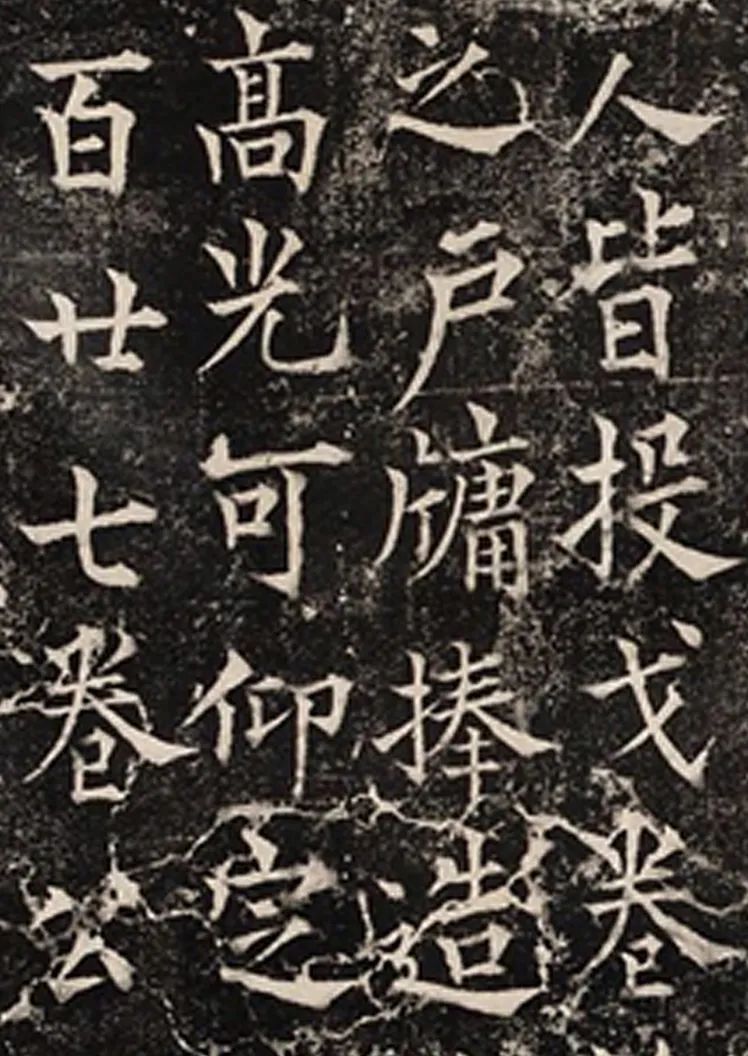 人皆投戈卷
之户牖捧造
髙光可仰㝎
百廿七卷